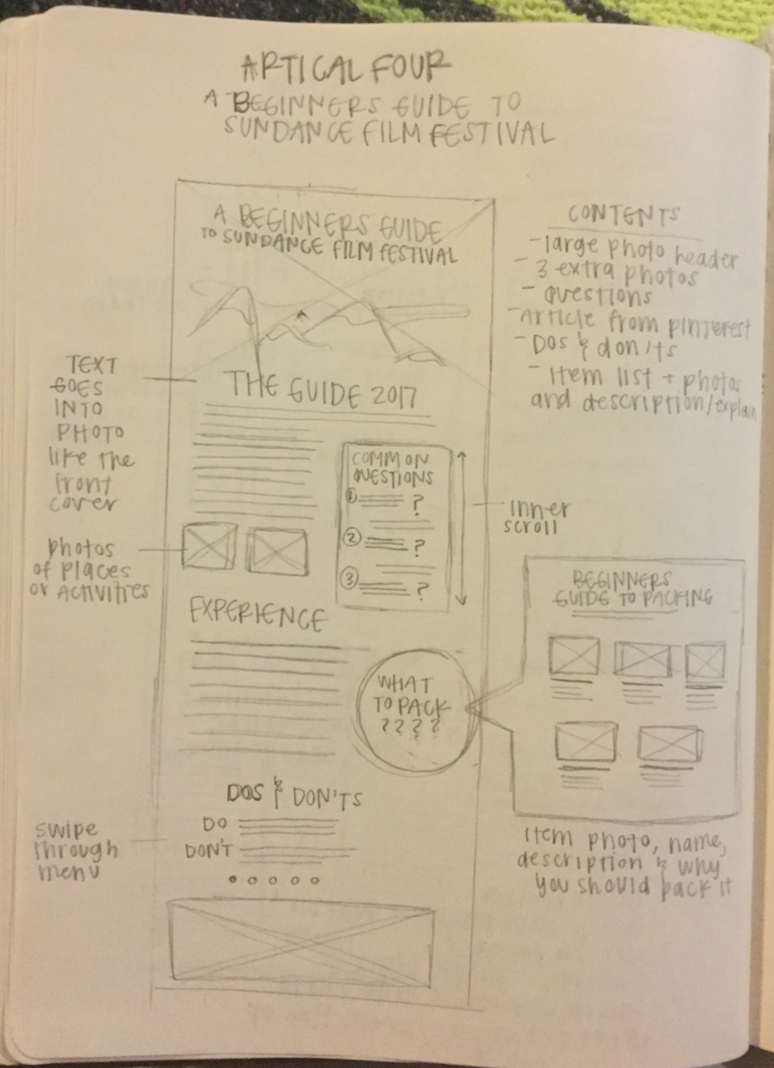 ARTICAL FOUR
A BEGINNERS GUIDE TO
SUNDANCE FILM FESTIVAL
A BEGINNERS GUIDE
TO SUNDANCE FILM FESTIVAL
THE GUIDE 2017
COMMON
QUESTIONS
1 ?
2 ?
3 ?
EXPERIENCE
WHAT
TO PACK
? ? ? ?
DOS & DON'TS
DO
DON'T
TEXT
GOES
INTO
PHOTO
like the
front
cover
photos
of places
or ACTIVITIES
swipe
through
menu
CONTENTS
- large photo header
- 3 extra photos
- questions
- Article from pinterest
- Dos & don'ts
- Item list + photos
and description/explain
inner
scroll
BEGINNERS
GUIDE TO PACKING
Item photo, name,
description & why
you should pack it